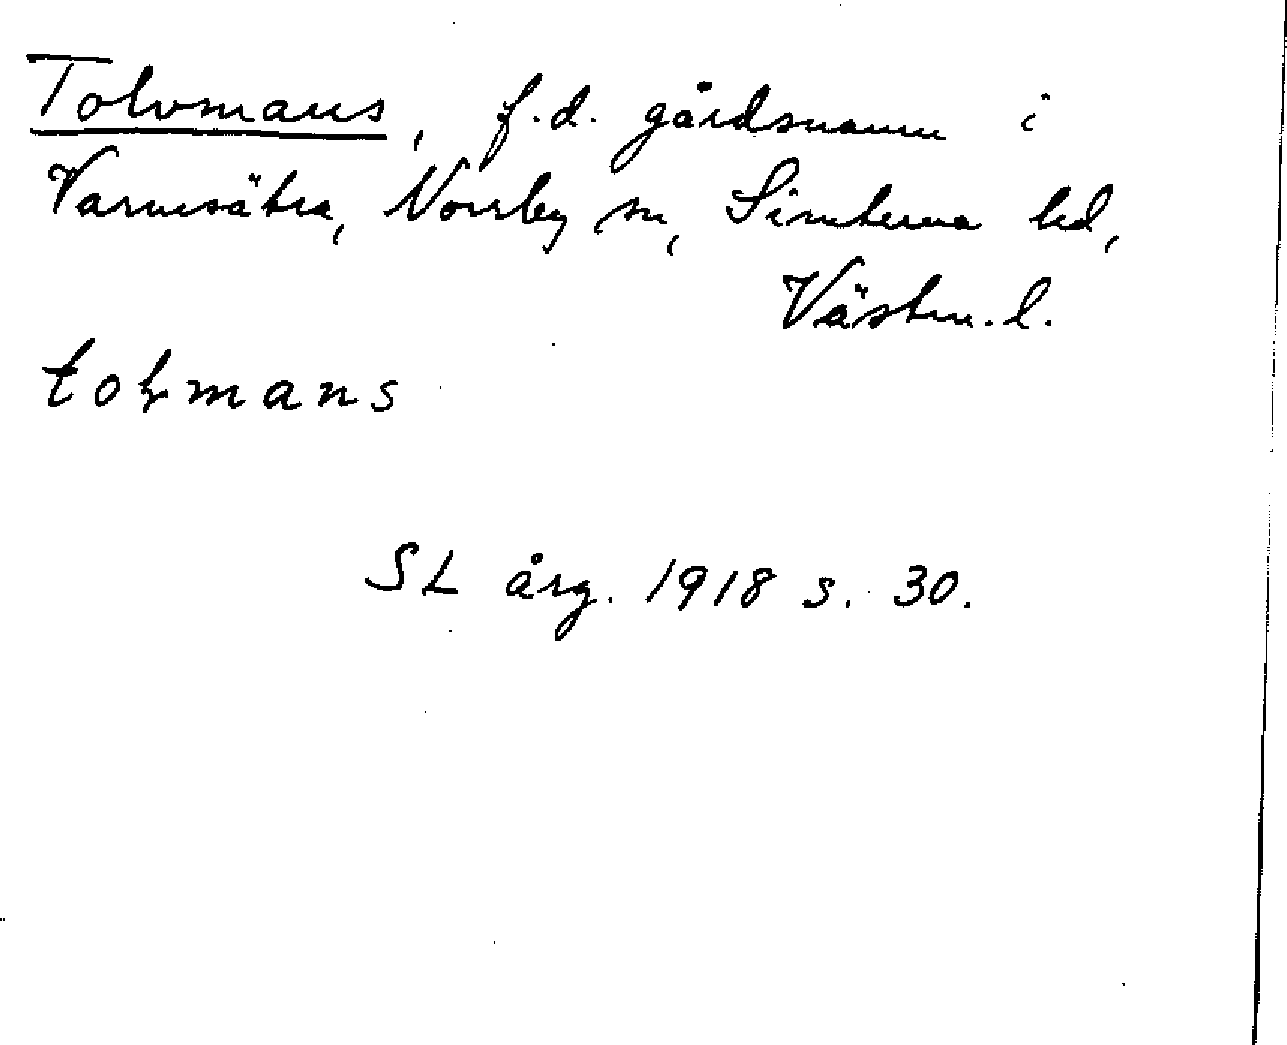 Tolvmans, f.d. gårdsnamn i
Varmsätra, Norrby sn, Simtuna hd,
Västm. l.
tolmans
SL årg. 1918 s. 30.